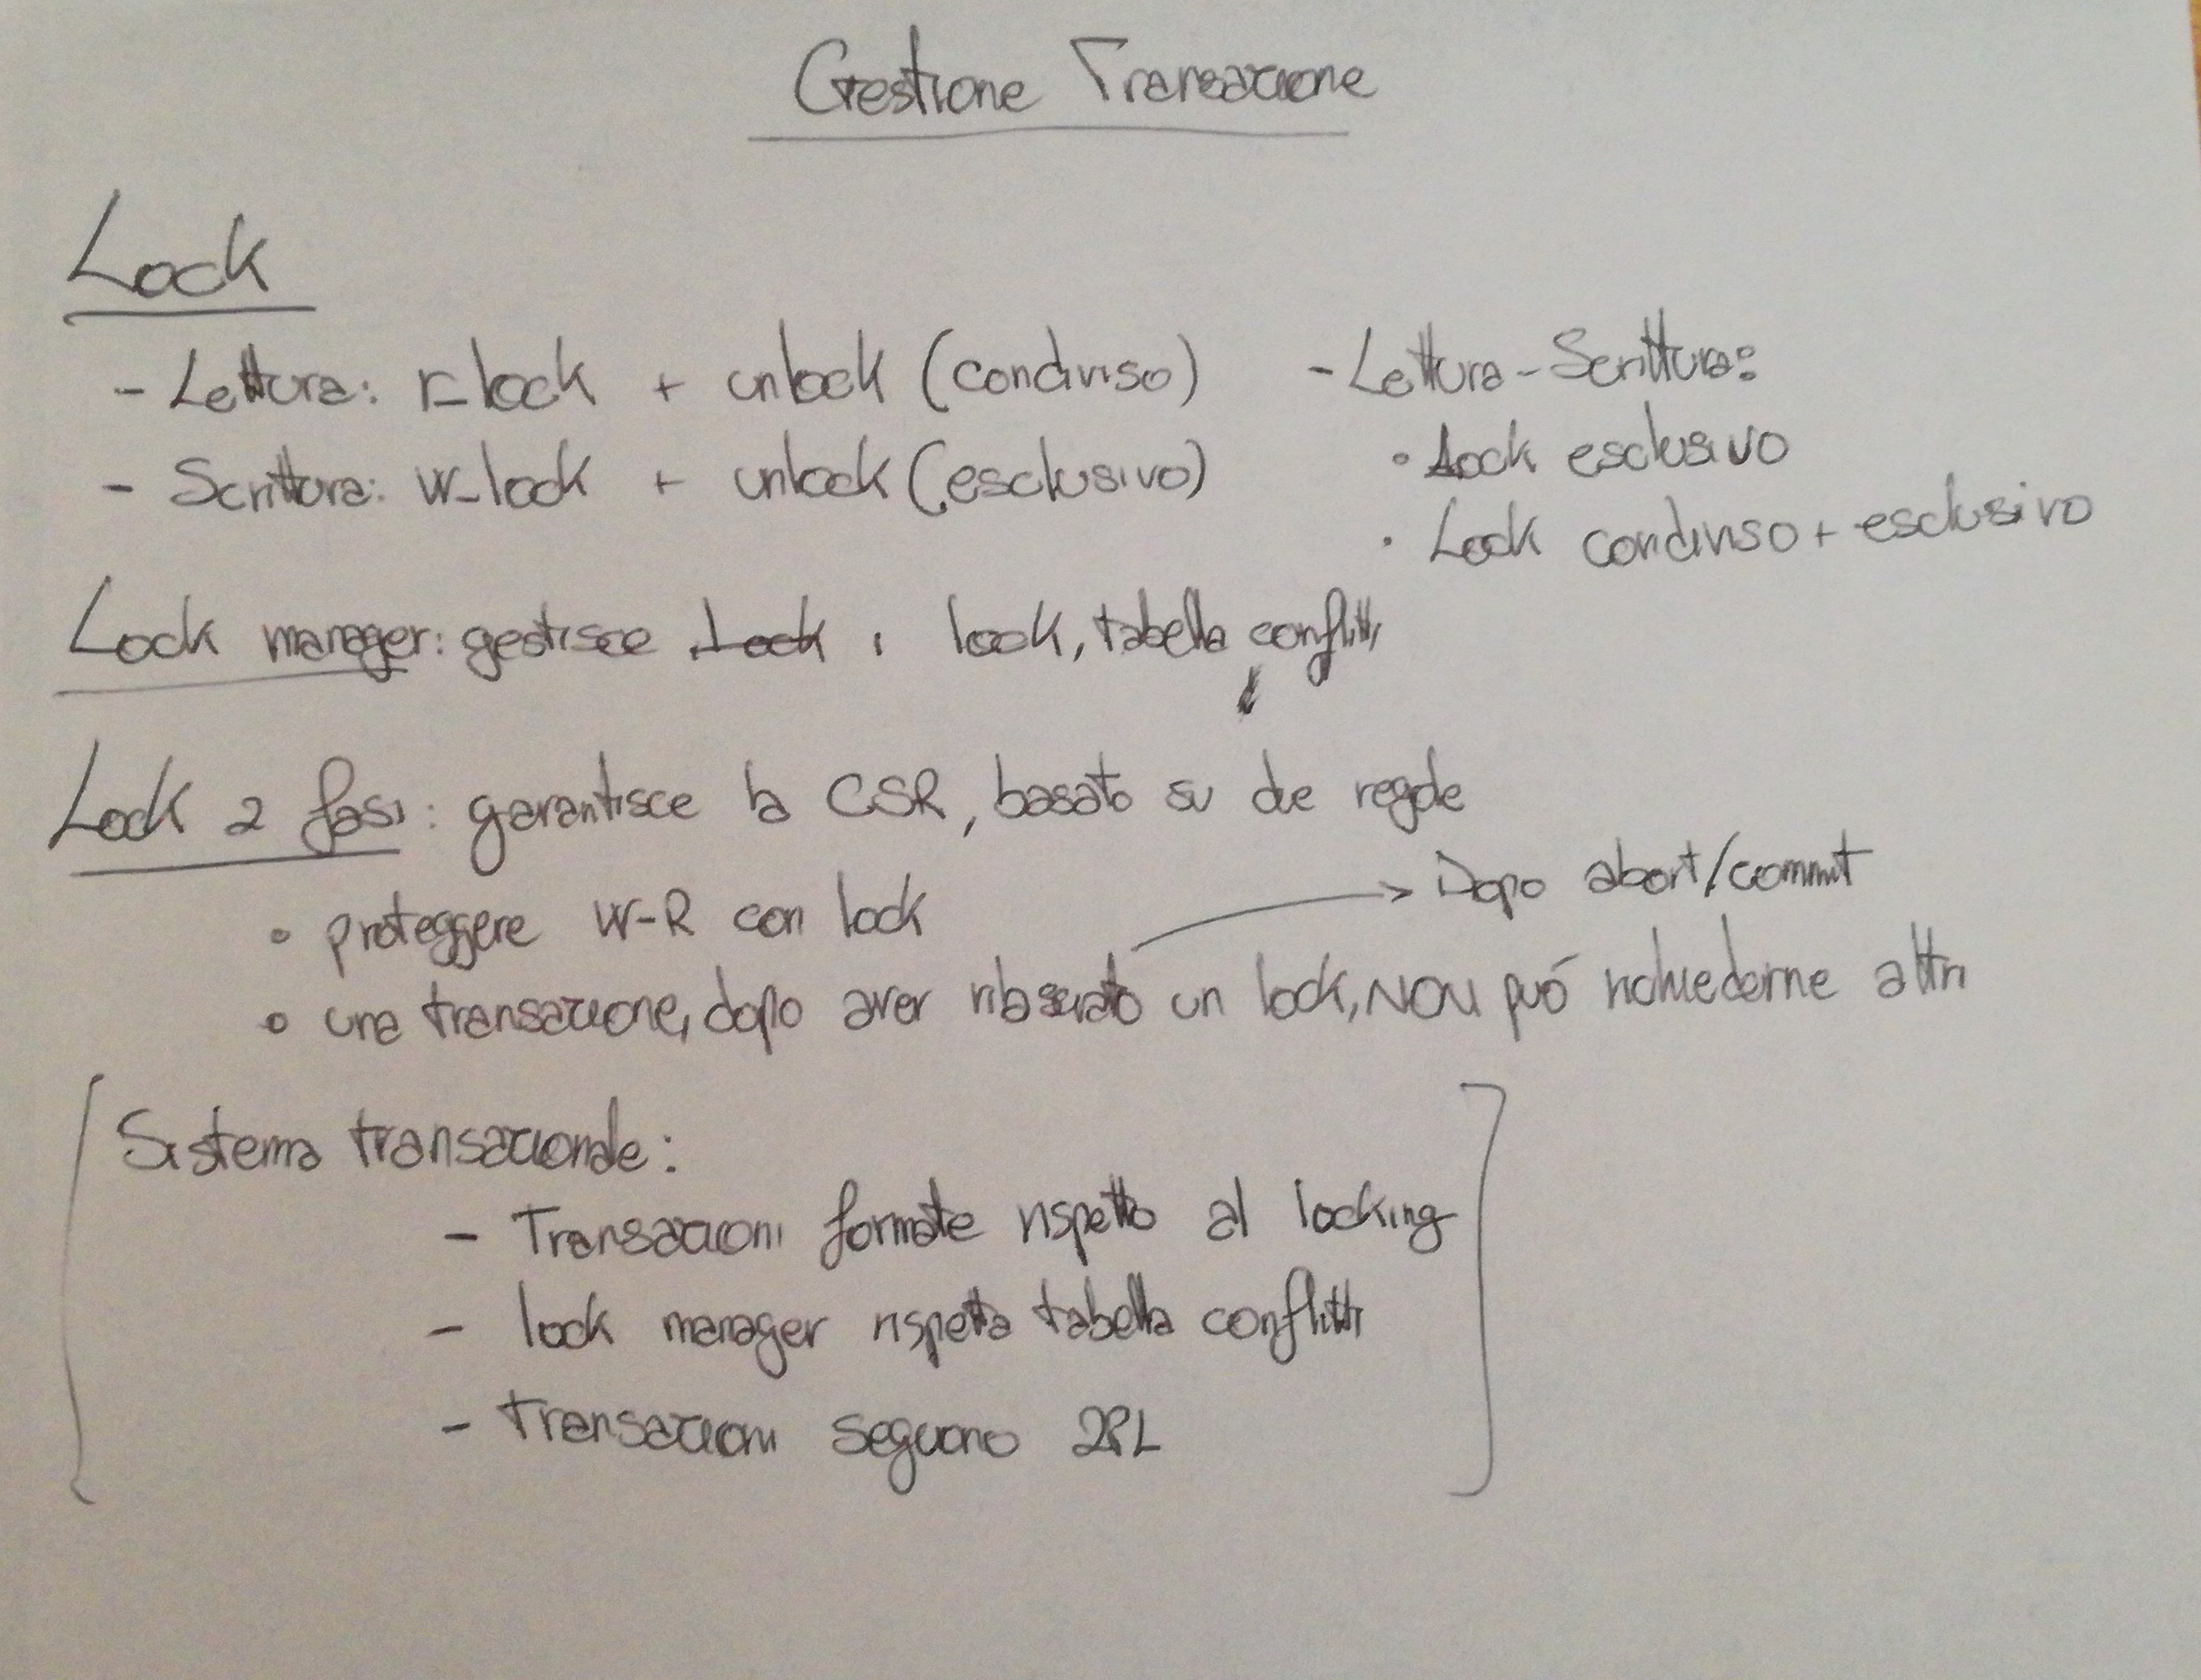 Gestione Transazione
Lock
- Lettura: r_lock + unlock (condiviso)
- Scrittura: w_lock + unlock (esclusivo)
- Lettura-Scrittura:
• Lock esclusivo
• Lock condiviso + esclusivo
Lock manager: gestisce Lock i lock, tabella conflitti
Lock 2 fasi: garantisce la CSR, basato su due regole
• proteggere W-R con lock
→ Dopo abort/commit
• una transazione, dopo aver rilasciato un lock, NON puó richiederne altri
[Sistema transazionale:
- Transazioni formate rispetto al locking
- lock manager rispetta tabella conflitti
- Transazioni seguono 2PL]